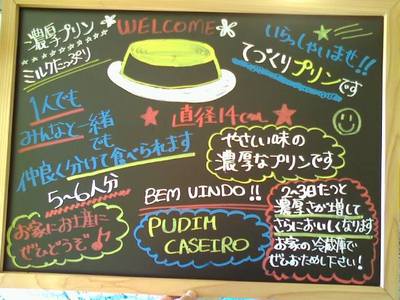 濃厚プリン
ミルクたっぷり
WELCOME
いらっしゃいませ!!
てづくりプリンです
1人でも
みんなと一緒
でも
仲良く分けて食べられます
5〜6人分
直径14cm
やさしい味の
濃厚なプリンです
お家にお土産に
ぜひどうぞ♪
BEM VINDO!!
PUDIM
CASEIRO
2〜3日たつと
濃厚さが増して
さらにおいしくなります
お家の冷蔵庫で
ぜひおためし下さい!